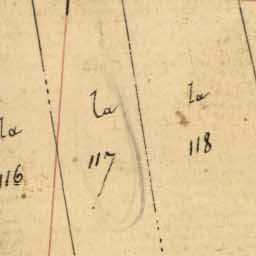 la
116
la
117
la
118